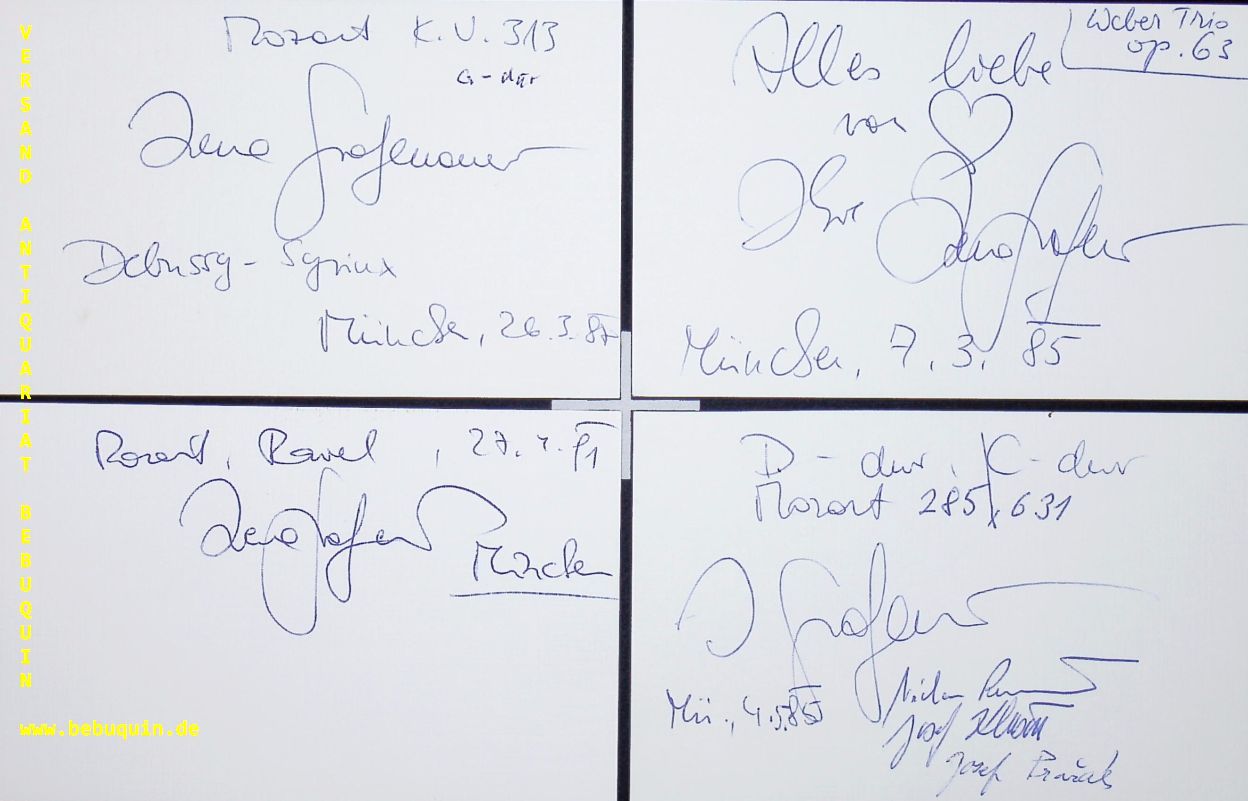 VERSAND ANTIQUARIAT BEBUQUIN
www.bebuquin.de
Mozart K.V. 313
G-dur
Irena Grafenauer
Debussy - Syrinx
München, 26.3.87
Weber Trio
op. 63
Alles liebe
von ♡
Ihre Irena Grafenauer
München, 7.3.85
Mozart, Ravel, 27.4.81
Irena Grafenauer
München
D-dur, C-dur
Mozart 285, 631
I Grafenauer
Mü., 4.5.85
Josef
Josef